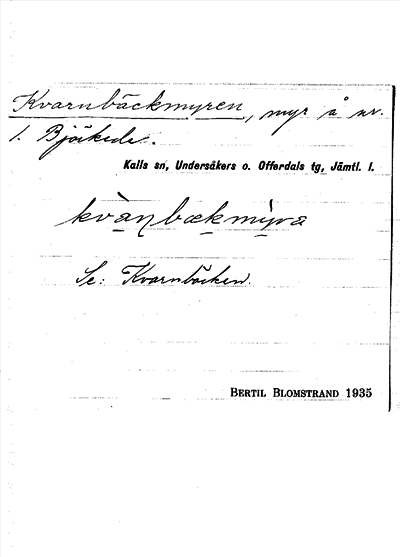 Kvarnbäckmyren, myr å nr.
1. Björkede.
Kalls sn, Undersåkers o. Offerdals tg, Jämtl. l.
kvàn̥bækmỳra
Se: Kvarnbäcken.
BERTIL BLOMSTRAND 1935